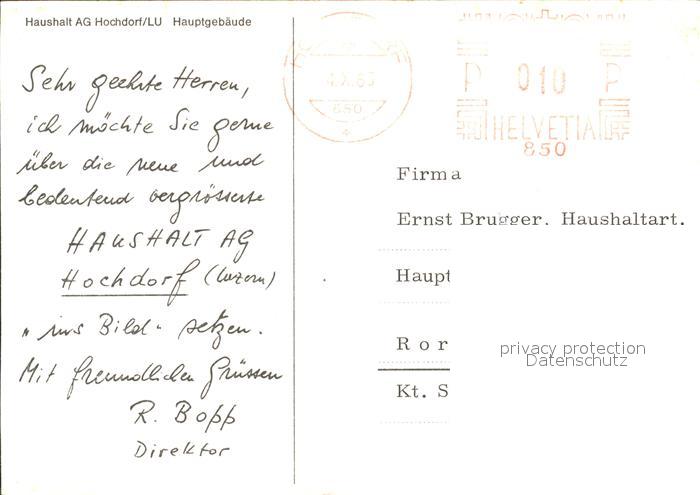 Haushalt AG Hochdorf/LU Hauptgebäude
Sehr geehrte Herren,
ich möchte Sie gerne
über die neue und
bedeutend vergrösserte
HAUSHALT AG
Hochdorf (Luzern)
"ins Bild" setzen.
Mit freundlichen Grüssen
R. Bopp
Direktor
650
P 010 P
HELVETIA
850
Firma
Ernst Brugger. Haushaltart.
Haupt
Ror
Kt. S
privacy protection
Datenschutz